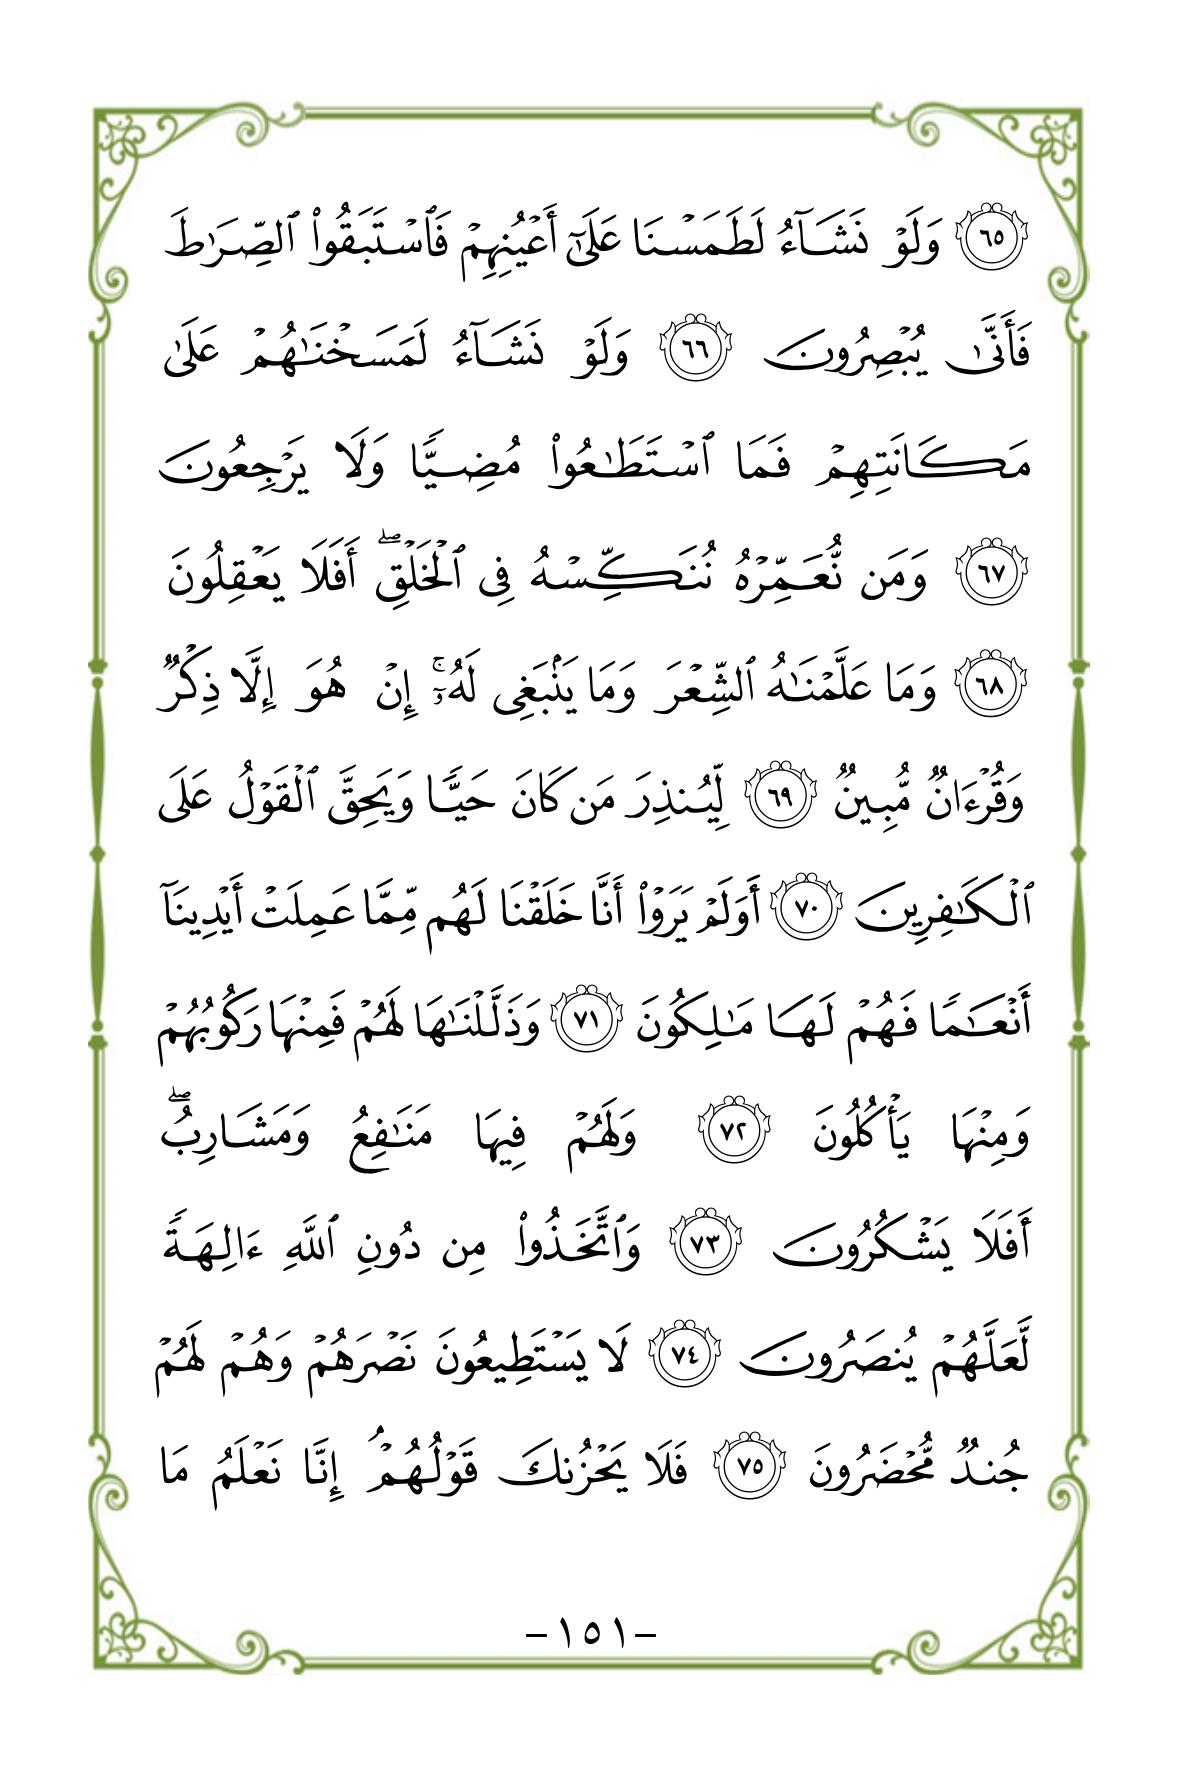 ٦٥ وَلَوۡ نَشَآءُ لَطَمَسۡنَا عَلَىٰٓ أَعۡيُنِهِمۡ فَٱسۡتَبَقُواْ ٱلصِّرَٰطَ
فَأَنَّىٰ يُبۡصِرُونَ ٦٦ وَلَوۡ نَشَآءُ لَمَسَخۡنَٰهُمۡ عَلَىٰ
مَكَانَتِهِمۡ فَمَا ٱسۡتَطَٰعُواْ مُضِيّٗا وَلَا يَرۡجِعُونَ
٦٧ وَمَن نُّعَمِّرۡهُ نُنَكِّسۡهُ فِي ٱلۡخَلۡقِۖ أَفَلَا يَعۡقِلُونَ
٦٨ وَمَا عَلَّمۡنَٰهُ ٱلشِّعۡرَ وَمَا يَنۢبَغِي لَهُۥٓۚ إِنۡ هُوَ إِلَّا ذِكۡرٞ
وَقُرۡءَانٞ مُّبِينٞ ٦٩ لِّيُنذِرَ مَن كَانَ حَيّٗا وَيَحِقَّ ٱلۡقَوۡلُ عَلَى
ٱلۡكَٰفِرِينَ ٧٠ أَوَلَمۡ يَرَوۡاْ أَنَّا خَلَقۡنَا لَهُم مِّمَّا عَمِلَتۡ أَيۡدِينَآ
أَنۡعَٰمٗا فَهُمۡ لَهَا مَٰلِكُونَ ٧١ وَذَلَّلۡنَٰهَا لَهُمۡ فَمِنۡهَا رَكُوبُهُمۡ
وَمِنۡهَا يَأۡكُلُونَ ٧٢ وَلَهُمۡ فِيهَا مَنَٰفِعُ وَمَشَارِبُۚۖ
أَفَلَا يَشۡكُرُونَ ٧٣ وَٱتَّخَذُواْ مِن دُونِ ٱللَّهِ ءَالِهَةٗ
لَّعَلَّهُمۡ يُنصَرُونَ ٧٤ لَا يَسۡتَطِيعُونَ نَصۡرَهُمۡ وَهُمۡ لَهُمۡ
جُندٞ مُّحۡضَرُونَ ٧٥ فَلَا يَحۡزُنكَ قَوۡلُهُمۡۘ إِنَّا نَعۡلَمُ مَا
-١٥١-